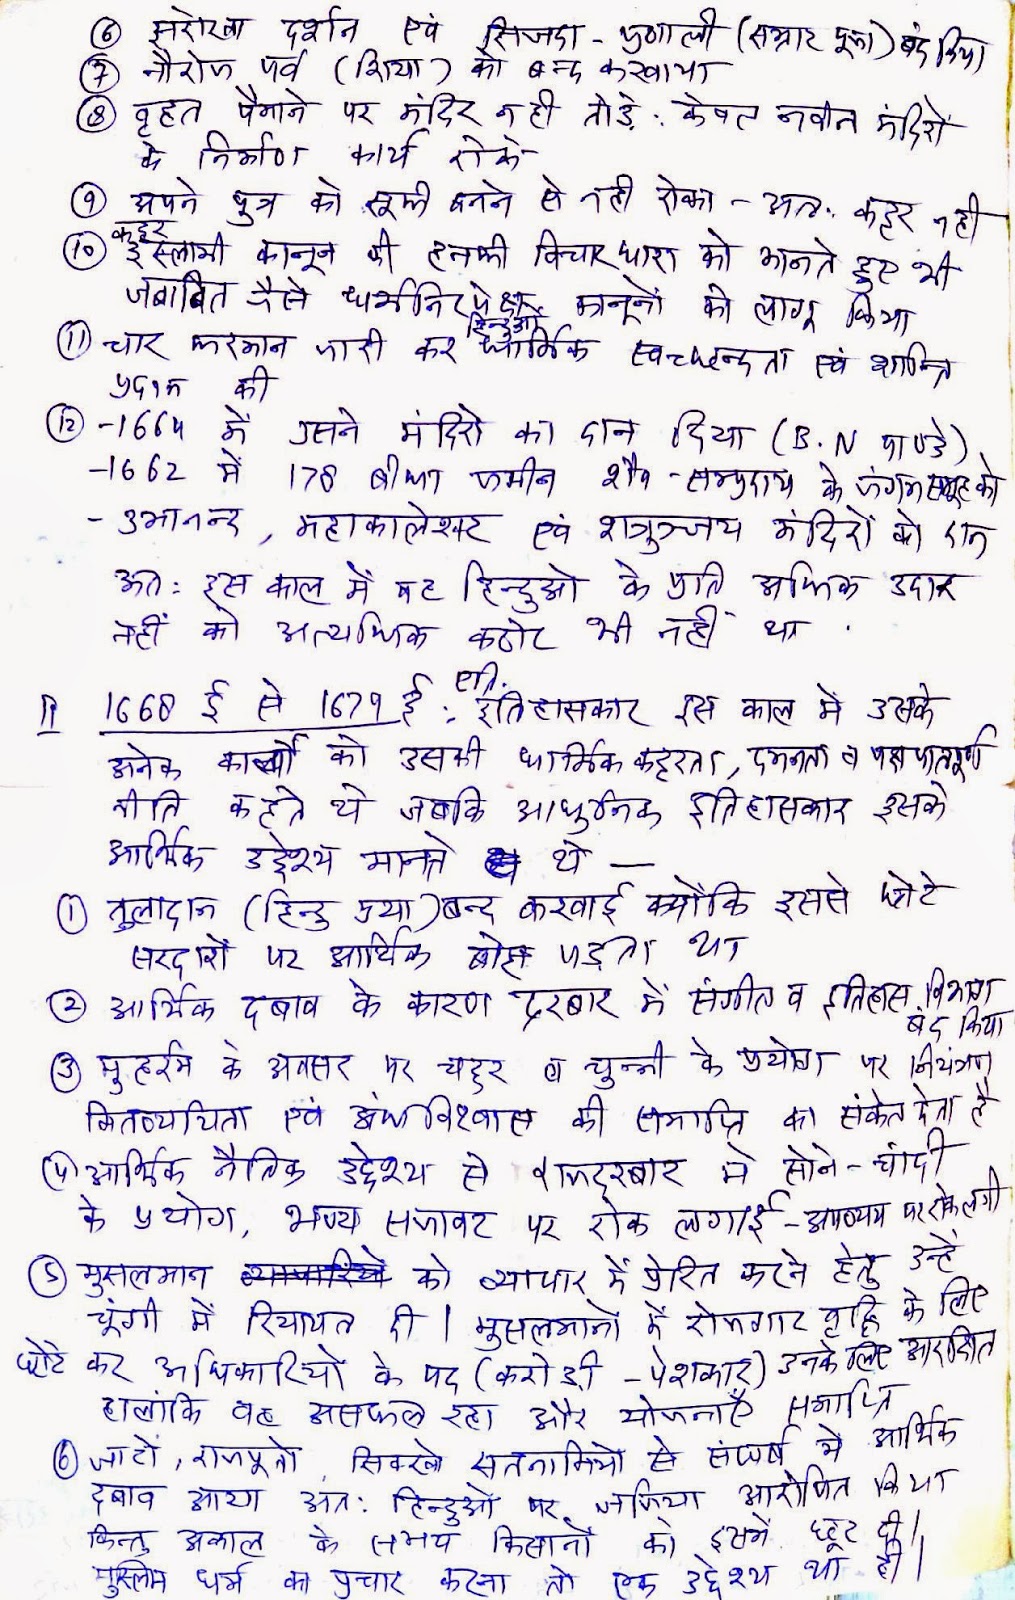 ⑥ झरोखा दर्शन एवं सिजदा - प्रणाली (सम्राट पूजा) बंद किया
⑦ नौरोज पर्व (शिया) को बन्द करवाया
⑧ वृहत पैमाने पर मंदिर नही तोड़े. केवल नवीन मंदिरों
के निर्माण कार्य रोके
⑨ अपने पुत्र को सूफी बनने से नही रोका - अतः कट्टर नही
कट्टर
⑩ इस्लामी कानून की हनफी विचारधारा को मानते हुए भी
जवाबित जैसे धर्मनिरपेक्ष कानूनों को लागू किया
हिन्दुओं
⑪ चार फरमान जारी कर धार्मिक स्वच्छन्दता एवं शान्ति
प्रदान की
⑫ -1664 में उसने मंदिरों का दान दिया (B.N पाण्डे)
-1662 में 178 बीघा जमीन शैव - सम्प्रदाय के जंगम समूह को
- उमानन्द, महाकालेश्वर एवं शत्रुञ्जय मंदिरों को दान
अतः इस काल में वह हिन्दुओ के प्रति अधिक उदार
नहीं को अत्यधिक कठोर भी नहीं था .
II 1668 ई से 1679 ई : इतिहासकार इस काल में उसके
अनेक कार्यों को उसकी धार्मिक कट्टरता, दमनता व पक्षपातपूर्ण
नीति कहते थे जबकि आधुनिक इतिहासकार इसके
आर्थिक उद्देश्य मानते थे —
① तुलादान (हिन्दु प्रथा) बन्द करवाई क्योंकि इससे छोटे
सरदारों पर आर्थिक बोझ पड़ता था
② आर्थिक दबाव के कारण दरबार में संगीत व इतिहास विभाग
बंद किया
③ मुहर्रम के अवसर पर चद्दर व चुन्नी के प्रयोग पर नियंत्रण
मितव्ययिता एवं अंधविश्वास की समाप्ति का संकेत देता है
④ आर्थिक नैतिक उद्देश्य से राजदरबार मे सोने - चांदी
के प्रयोग, भव्य सजावट पर रोक लगाई - अपव्यय पर रोक लगी
⑤ मुसलमान व्यापारियो को व्यापार में प्रेरित करने हेतु उन्हे
चूंगी में रियायत दी | मुसलमानों में रोजगार वृद्धि के लिए
छोटे कर अधिकारियों के पद (करोडी - पेशकार) उनके लिए आरक्षित
हालांकि वह असफल रहा और योजनाएँ समाप्ति
⑥ जाटों, राजपूतो, सिक्खो सतनामियो से संघर्ष मे आर्थिक
दबाव आया अतः हिन्दुओ पर जजिया आरोपित किया
किन्तु अकाल के समय किसानों को इसमें छूट दी |
मुस्लिम धर्म का प्रचार करना तो एक उद्देश्य था ही |